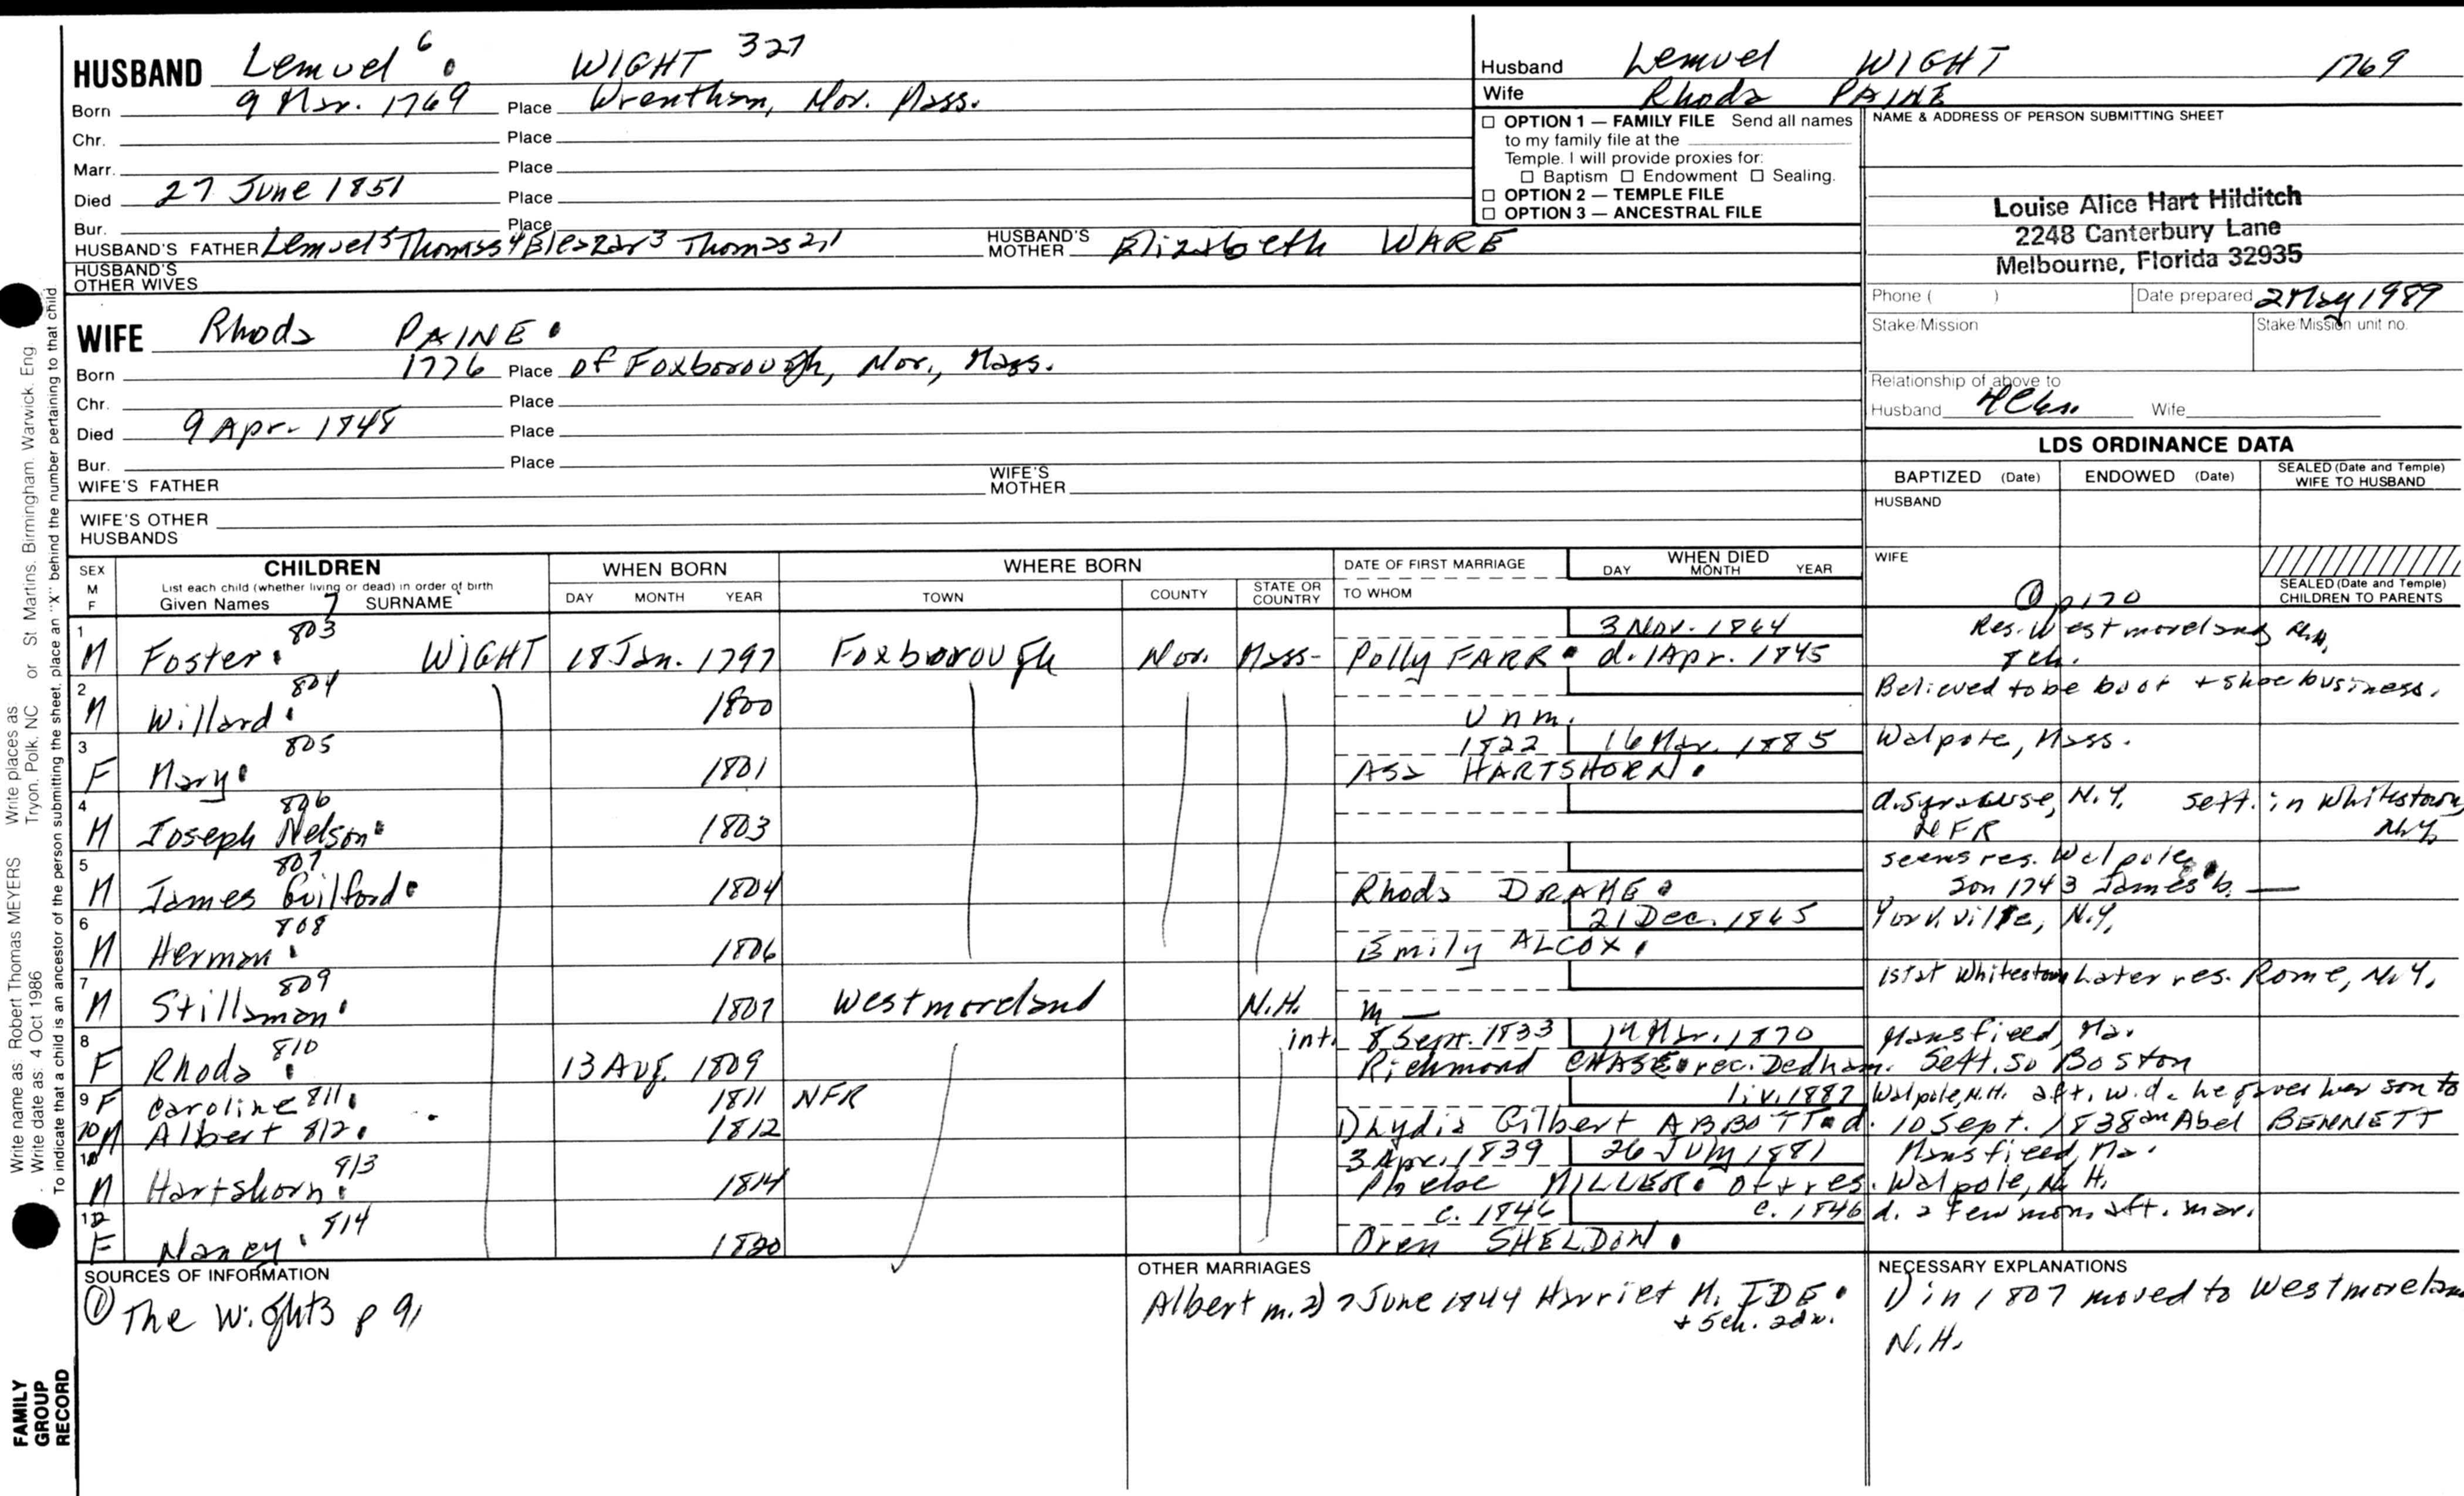 HUSBAND Lemuel 6 WIGHT 327
Born 9 Mar. 1769 Place Wrentham, Nor. Mass.
Chr. Place
Marr. Place
Died 27 June 1851 Place
Bur. Place
HUSBAND'S FATHER Lemuel5 Thomas4 Eleazar3 Thomas2,1 HUSBAND'S MOTHER Elizabeth WARE
HUSBAND'S OTHER WIVES
WIFE Rhoda PAINE
Born 1776 Place of Foxborough, Nor., Mass.
Chr. Place
Died 9 Apr. 1848 Place
Bur. Place
WIFE'S FATHER WIFE'S MOTHER
WIFE'S OTHER HUSBANDS
Husband Lemuel WIGHT 1769
Wife Rhoda PAINE
☐ OPTION 1 — FAMILY FILE Send all names
to my family file at the
Temple. I will provide proxies for:
☐ Baptism ☐ Endowment ☐ Sealing.
☐ OPTION 2 — TEMPLE FILE
☐ OPTION 3 — ANCESTRAL FILE
NAME & ADDRESS OF PERSON SUBMITTING SHEET
Louise Alice Hart Hilditch
2248 Canterbury Lane
Melbourne, Florida 32935
Phone ( ) Date prepared 2 May 1989
Stake/Mission Stake/Mission unit no.
Relationship of above to
Husband Wife
LDS ORDINANCE DATA
BAPTIZED (Date) ENDOWED (Date) SEALED (Date and Temple) WIFE TO HUSBAND
HUSBAND
WIFE
SEALED (Date and Temple) CHILDREN TO PARENTS
SEX M F
CHILDREN
List each child (whether living or dead) in order of birth
Given Names 7 SURNAME
WHEN BORN DAY MONTH YEAR
WHERE BORN TOWN COUNTY STATE OR COUNTRY
DATE OF FIRST MARRIAGE TO WHOM
WHEN DIED DAY MONTH YEAR
p170
1 M Foster 803 WIGHT 18 Jan. 1797 Foxborough Nor. Mass- 3 Nov. 1864 Res. Westmoreland
Polly FARR d. 1 Apr. 1845 7 ch.
2 M Willard 804 1800 Unm. Believed to be boot + shoe business.
3 F Mary 805 1801 1822 16 Mar. 1885 Walpole, Mass.
Asa HARTSHORN
4 M Joseph Nelson 806 1803 d. Syracuse, N.Y. sett. in Whitestown, N.Y.
NFR
5 M James Guilford 807 1804 Rhoda DRAKE seems res. Walpole
son 1743 James b. —
6 M Herman 808 1806 21 Dec. 1865 Yorkville, N.Y.
Emily ALCOX
7 M Stillaman 809 1807 Westmoreland N.H. m — 1st at Whitestown Later res. Rome, N.Y.
8 F Rhoda 810 13 Aug. 1809 int. 8 Sept. 1833 14 Mar. 1870 Mansfield, Ma.
Richmond CHASE rec. Dedham. Sett. So Boston
9 F Caroline 811 1811 NFR
10 M Albert 812 1812 liv. 1887 Walpole, N.H. aft. w. d. he gives her son to
1) Lydia Gilbert ABBOTT d. 10 Sept. 1838 an Abel BENNETT
11 M Hartshorn 813 1814 3 Apr. 1839 26 July 1881 Mansfield, Ma.
Phebe MILLER. of + res. Walpole, N.H.
12 F Nancy 814 1820 c. 1846 c. 1846 d. a few mon. aft. mar.
Oren SHELDON
SOURCES OF INFORMATION
① The Wights p 91
OTHER MARRIAGES
Albert m. 2) 7 June 1844 Harriet M. IDE
+ 5 ch. adv.
NECESSARY EXPLANATIONS
1) in 1807 moved to Westmoreland
N.H.
Write name as: Robert Thomas MEYERS Write places as Tryon, Polk, NC or St Martins, Birmingham, Warwick, Eng
Write date as: 4 Oct 1986
To indicate that a child is an ancestor of the person submitting the sheet, place an "X" behind the number pertaining to that child
FAMILY
GROUP
RECORD